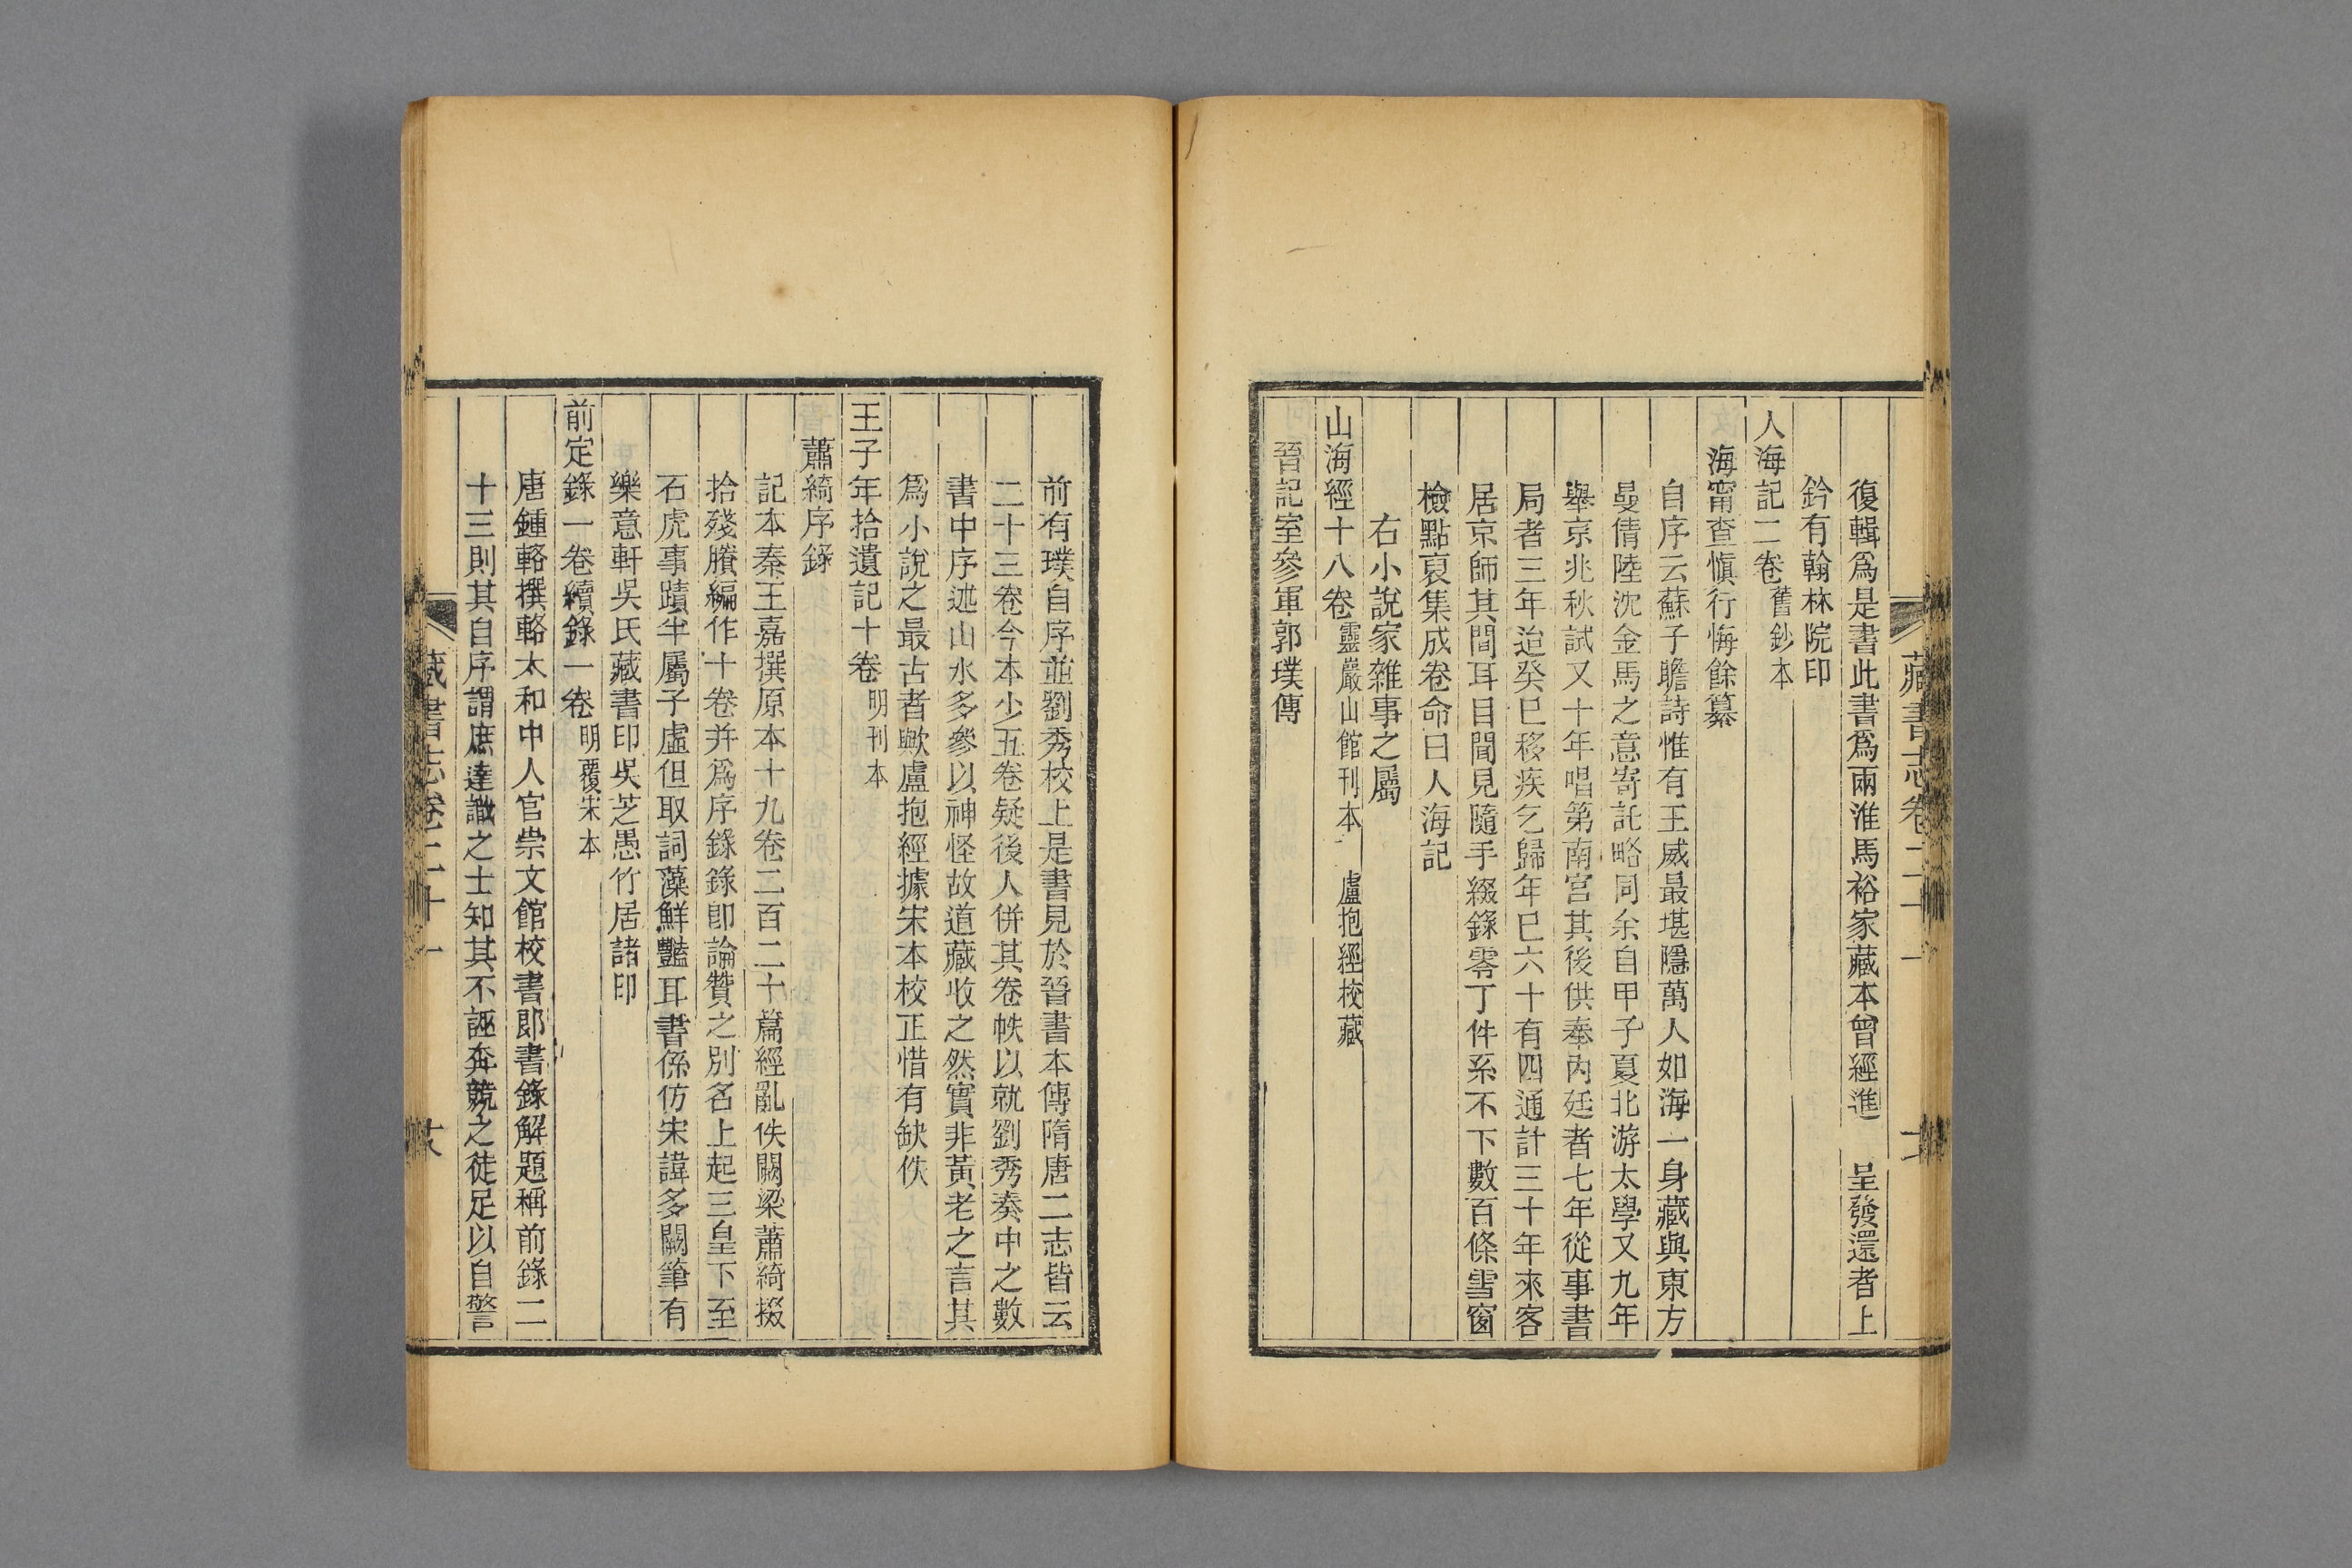 藏書志卷二十一
復輯爲是書此書爲兩淮馬裕家藏本曾經進　呈發還者上
鈐有翰林院印
人海記二卷舊鈔本
海甯查愼行悔餘纂
自序云蘇子瞻詩惟有王威最堪隱萬人如海一身藏與東方
曼倩陸沈金馬之意寄託略同余自甲子夏北游太學又九年
舉京兆秋試又十年唱第南宫其後供奉內廷者七年從事書
局者三年迨癸巳移疾乞歸年已六十有四通計三十年來客
居京師其間耳目聞見隨手綴錄零丁件系不下數百條雪窗
檢點裒集成卷命曰人海記
右小說家雜事之屬
山海經十八卷靈巖山館刊本　盧抱經校藏
晉記室參軍郭璞傳
前有璞自序並劉秀校上是書見於晉書本傳隋唐二志皆云
二十三卷今本少五卷疑後人併其卷帙以就劉秀奏中之數
書中序述山水多參以神怪故道藏收之然實非黃老之言其
爲小說之最古者歟盧抱經據宋本校正惜有缺佚
王子年拾遺記十卷明刊本
蕭綺序錄
記本秦王嘉撰原本十九卷二百二十篇經亂佚闕梁蕭綺掇
拾殘賸編作十卷并爲序錄錄卽論贊之別名上起三皇下至
石虎事蹟半屬子虛但取詞藻鮮豔耳書係仿宋諱多闕筆有
樂意軒吳氏藏書印吳芝愚竹居諸印
前定錄一卷續錄一卷明覆宋本
唐鍾輅撰輅太和中人官崇文館校書郞書錄解題稱前錄二
十三則其自序謂庶達識之士知其不誣奔競之徒足以自警
藏書志卷二十一